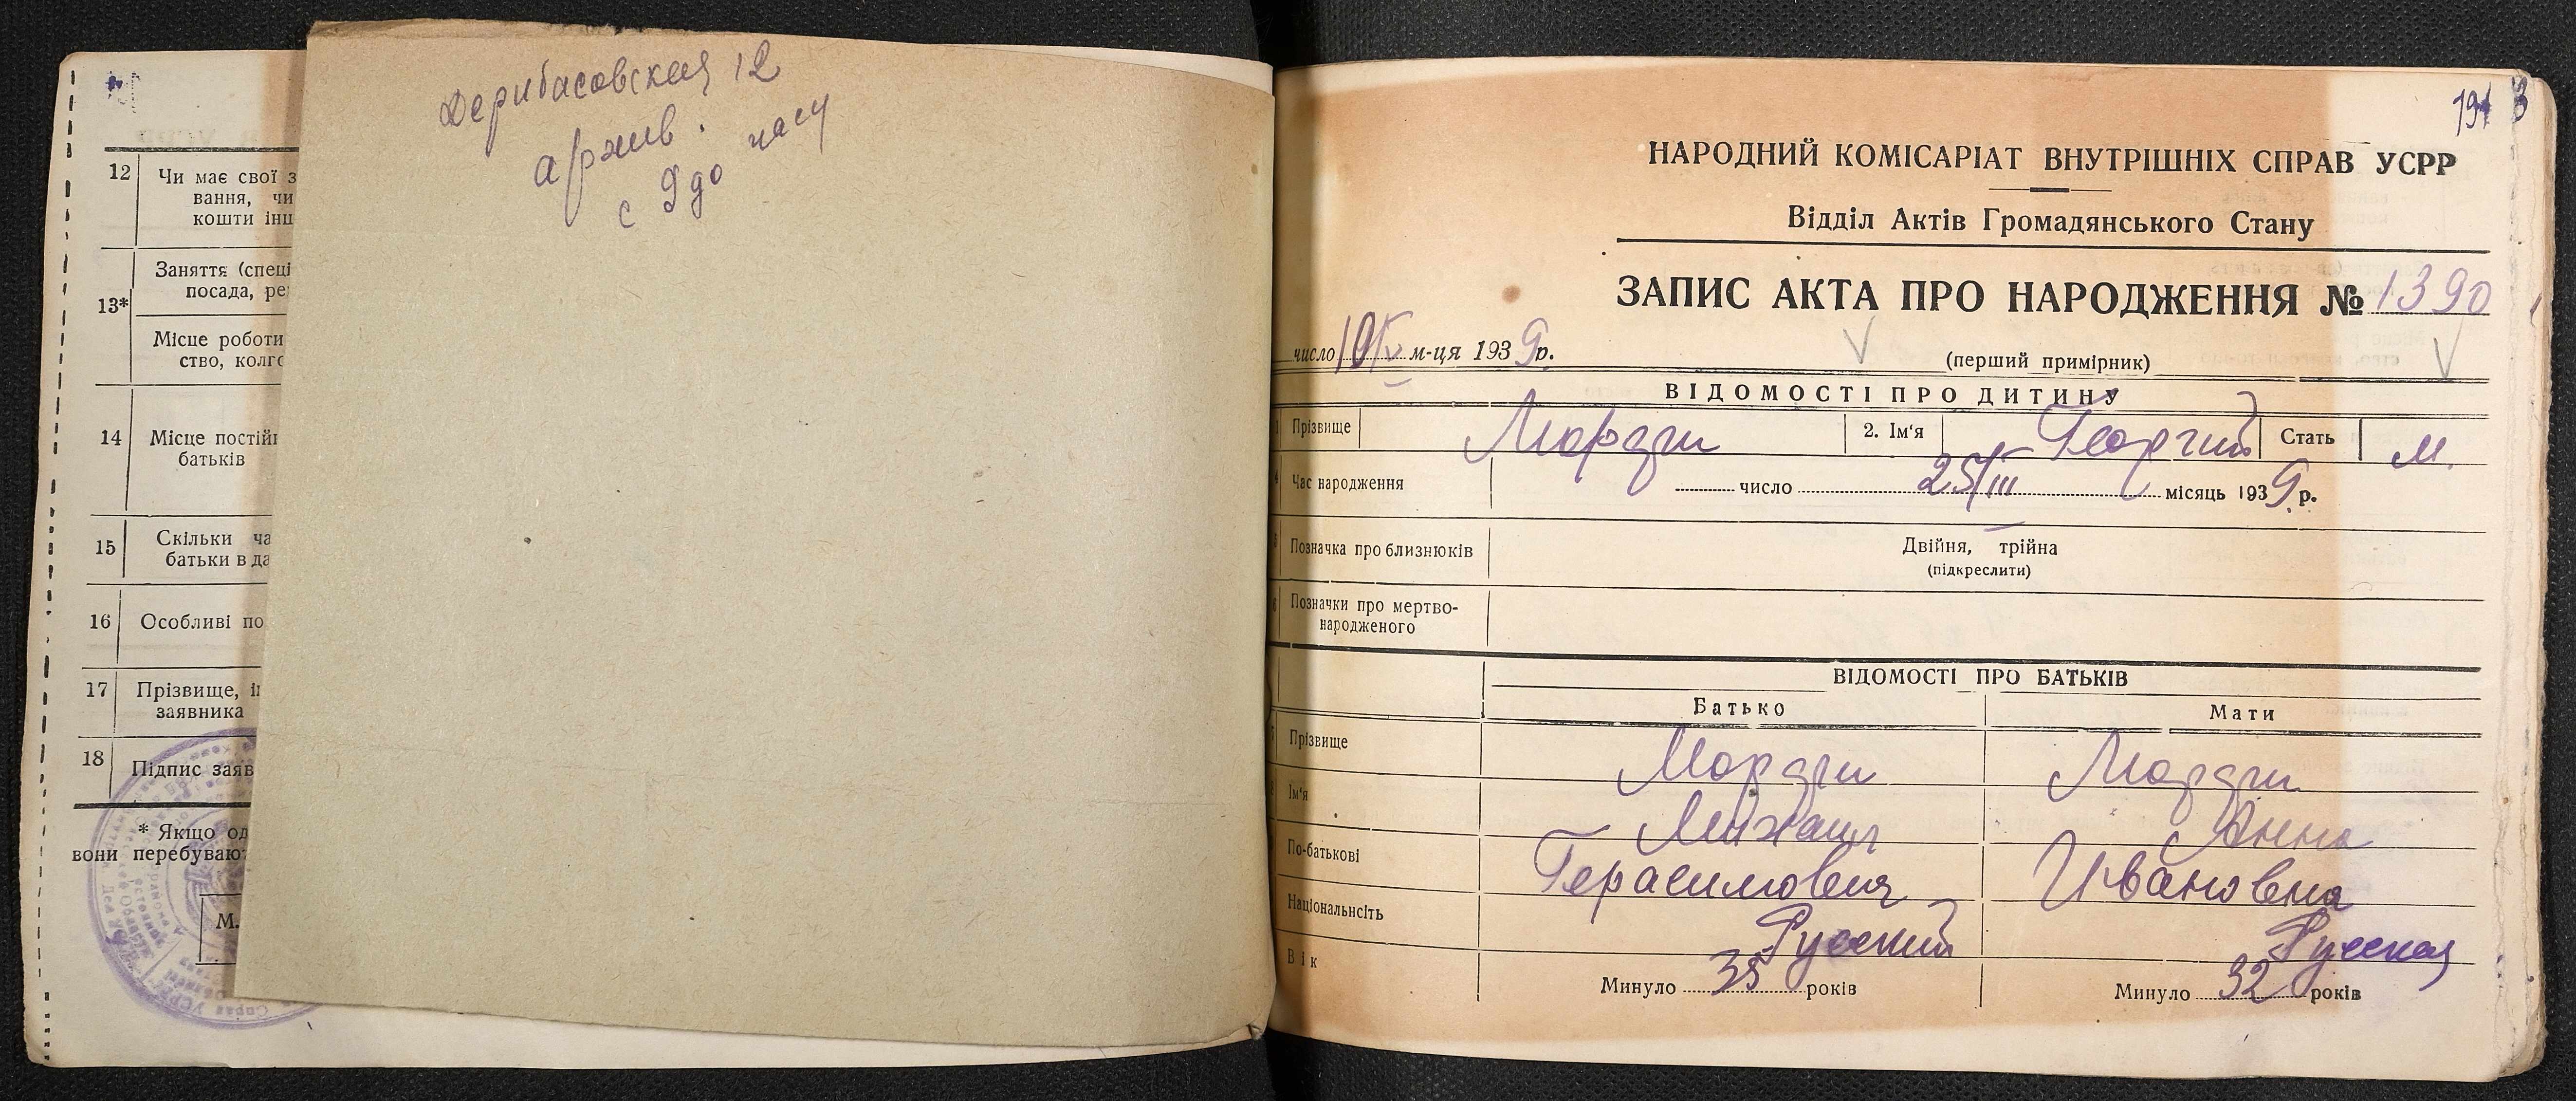 Дерибасовская 12
архив.
с 9 до часу
12
Чи має свої з
вання, чи
кошти інш
13*
Заняття (спеці
посада, ре
Місце роботи
ство, колг
14
Місце постій
батьків
15
Скільки ча
батьки в да
16
Особливі по
17
Прізвище, і
заявника
18
Підпис заяв
* Якщо од
вони перебуваю
М.
НАРОДНИЙ КОМІСАРІАТ ВНУТРІШНІХ СПРАВ УСРР
Відділ Актів Громадянського Стану
ЗАПИС АКТА ПРО НАРОДЖЕННЯ № 1390
число 10/IV м-ця 1939 р.
(перший примірник)
ВІДОМОСТІ ПРО ДИТИНУ
Прізвище
2. Ім'я Георгий Стать м.
Час народження число 25/III місяць 1939 р.
Позначка про близнюків Двійня, трійна
(підкреслити)
Позначки про мертво-
народженого
ВІДОМОСТІ ПРО БАТЬКІВ
Батько Мати
Прізвище
Ім'я Михаил Анна
По-батькові Герасимович Ивановна
Національність Русский Русская
Вік Минуло 35 років Минуло 32 років